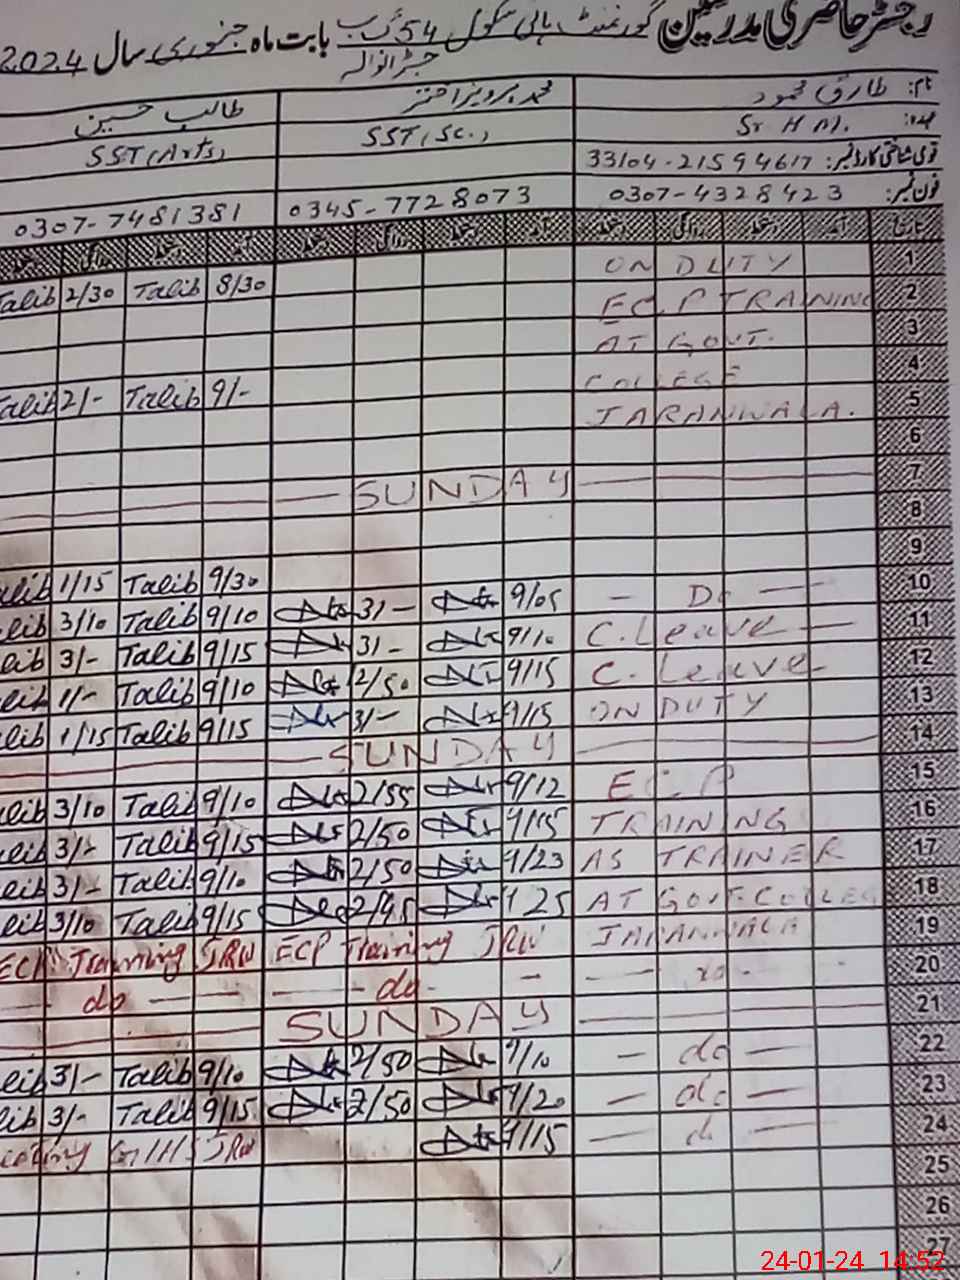 رجسٹر حاضری مدرسین گورنمنٹ ہائی سکول 54 گ ب بابت ماہ جنوری سال 2024
جڑانوالہ
نام: طارق محمود محمد پرویز اختر طالب حسین
عہدہ: Sr. H M. SST(Sc.) SST(Arts)
قومی شناختی کارڈ نمبر: 33104-21594617
فون نمبر: 0307-4328423 0345-7728073 0307-7481381
تاریخ آمد دستخط روانگی دستخط آمد دستخط روانگی دستخط آمد دستخط روانگی
1 ON DUTY
2 ECP TRAINING Talib 2/30 Talib 8/30
3 AT GOVT.
4 COLLEGE
5 JARANWALA. Talib 2/- Talib 9/-
6
7 SUNDAY
8
9
10 — Do — 9/05 3/- Talib 1/15 Talib 9/30
11 C. Leave — 9/10 3/- 3/10 Talib 9/10
12 C. Leave 9/15 2/50 3/- Talib 9/15
13 ON DUTY 9/15 3/- 1/- Talib 9/10
14 SUNDAY 1/15 Talib 9/15
15 ECP 9/12 2/55 3/10 Talib 9/10
16 TRAINING 9/15 2/50 3/- Talib 9/15
17 AS TRAINER 9/23 2/50 3/- Talib 9/10
18 AT GOVT. COLLEG 9 25 3/10 Talib 9/15
19 JARANWALA ECP Training JRW ECP Training JRW
20 — do - — do - — do —
21 SUNDAY
22 — do — 9/10 2/50 3/- Talib 9/10
23 — do — 9/20 2/50 3/- Talib 9/15
24 — d — 9/15 JRW
25
26
27
24-01-24 14:52